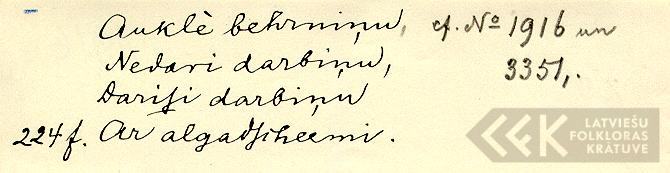 Auklè behrniņu, cf. № 1916 un
Nedari darbiņu, 3351,.
Darisi darbiņu
224 f. Ar algadsiheemi.
LATVIEŠU
FOLKLORAS
KRĀTUVE